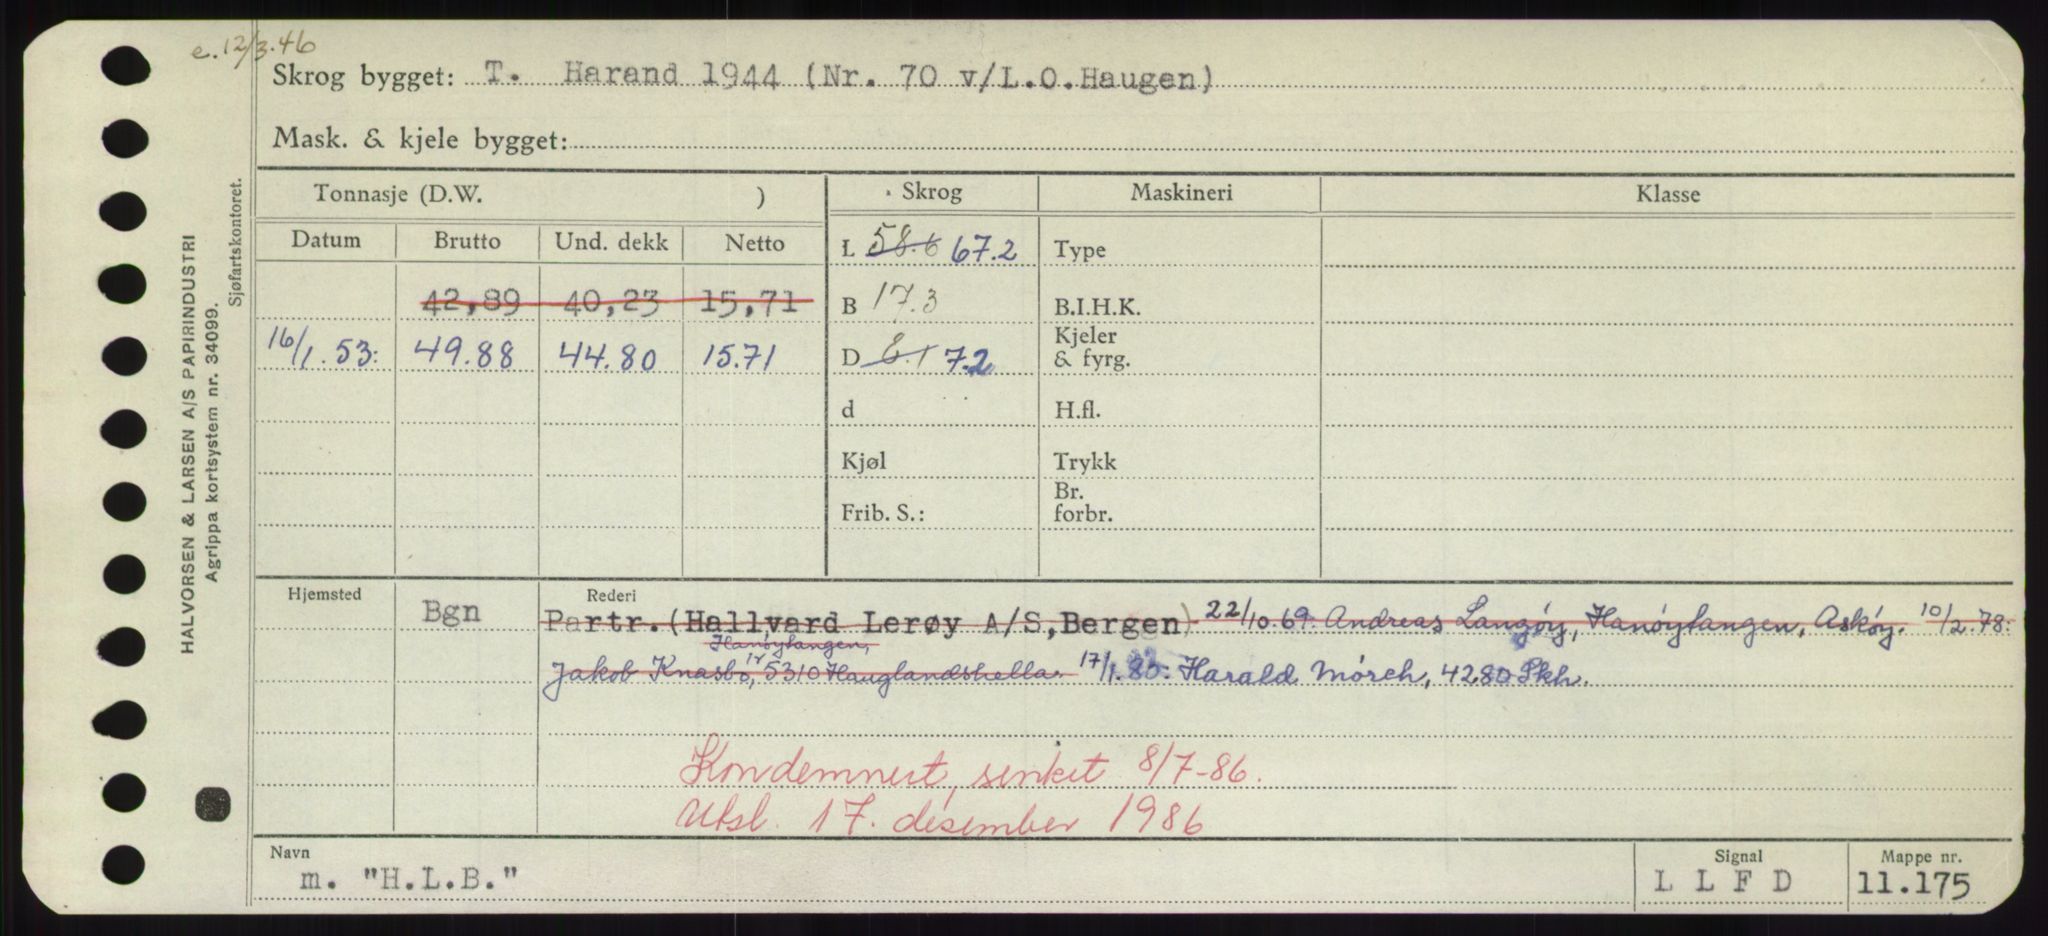 e. 12/3.46
Skrog bygget: T. Harand 1944 (Nr. 70 v/L.O.Haugen)
Mask. & kjele bygget:
HALVORSEN & LARSEN A/S PAPIRINDUSTRI
Agrippa kortsystem nr. 34099.
Sjøfartskontoret.
Tonnasje (D.W. ) Skrog Maskineri Klasse
Datum Brutto Und. dekk Netto L 58.6 67.2 Type
42,89 40,23 15,71 B 17.3 B.I.H.K.
16/1.53: 49.88 44.80 15.71 D 8.1 7.2 Kjeler & fyrg.
d H.fl.
Kjøl Trykk
Frib. S.: Br. forbr.
Hjemsted Rederi
Bgn Partr. (Hallvard Lerøy A/S, Bergen) 22/10.69: Andreas Langöy, Hanöytangen, Asköy. 10/2.78:
Hanöytangen,
Jakob Knasbö, 5310 Hauglandshella. 17/1.80: Harald Mörch, 4280 Skh.
Kondemnert, senket 8/7-86.
Utsl. 17. desember 1986
Navn Signal Mappe nr.
m. "H.L.B." L L F D 11.175